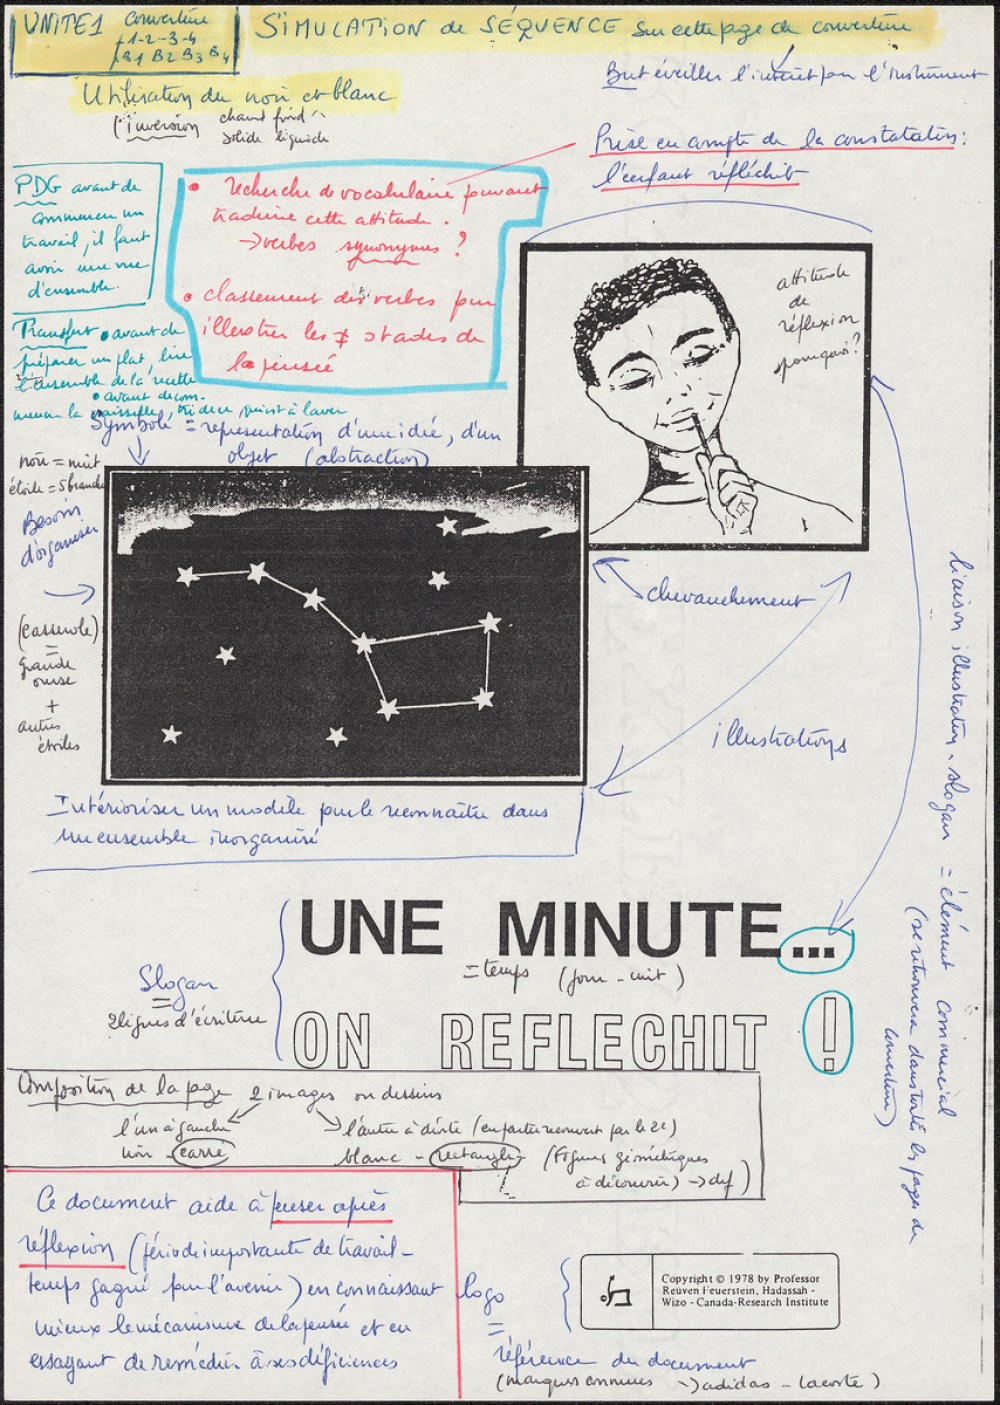 UNITE1 Couverture
1-2-3-4
B1 B2 B3 B4
SIMULATION de SÉQUENCE sur cette page de couverture
But éveiller l'intérêt pour l'instrument
Utilisation du noir et blanc
l'inversion chaud froid
solide liquide
Prise en compte de la constatation:
l'enfant réfléchit
PDG avant de
commencer un
travail, il faut
avoir une vue
d'ensemble.
• recherche de vocabulaire pouvant
traduire cette attitude.
→ verbes synonymes ?
• classement des verbes pour
illustrer les ≠ stades de
la pensée
Transfert • avant de
préparer un plat, lire
l'ensemble de la recette
• avant de com-
mencer la vaisselle, à laver
attitude
de
réflexion
pourquoi?
Symbole = représentation d'une idée, d'un
objet (abstraction)
noir = nuit
étoile = 5 branches
Besoin
d'organiser
(casserole)
=
grande
ourse
+
autres
étoiles
chevauchement
illustrations
liaison illustration-slogan = élément commercial
(se retrouvera dans toutes les pages de
couverture)
Intérioriser un modèle pour le reconnaître dans
un ensemble inorganisé
UNE MINUTE...
= temps (jour - nuit)
Slogan
=
2 lignes d'écriture
ON REFLECHIT !
Composition de la page 2 images ou dessins
l'un à gauche l'autre à droite (en partie recouvert par le 2e)
noir - carré blanc - rectangle (figures géométriques
à découvrir) → def)
Ce document aide à penser après
réflexion (période importante de travail -
temps gagné pour l'avenir) en connaissant
mieux le mécanisme de la pensée et en
essayant de remédier à ses déficiences
logo
=
Copyright © 1978 by Professor
Reüven Feuerstein, Hadassah -
Wizo - Canada-Research Institute
référence du document
(marques connues → adidas - Lacoste)